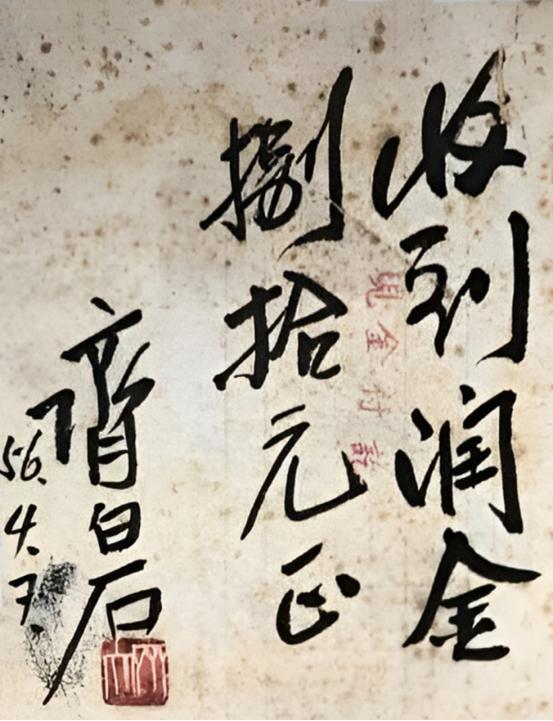 收到润金
捌拾元正
齊白石
56.4.7.
现金付讫